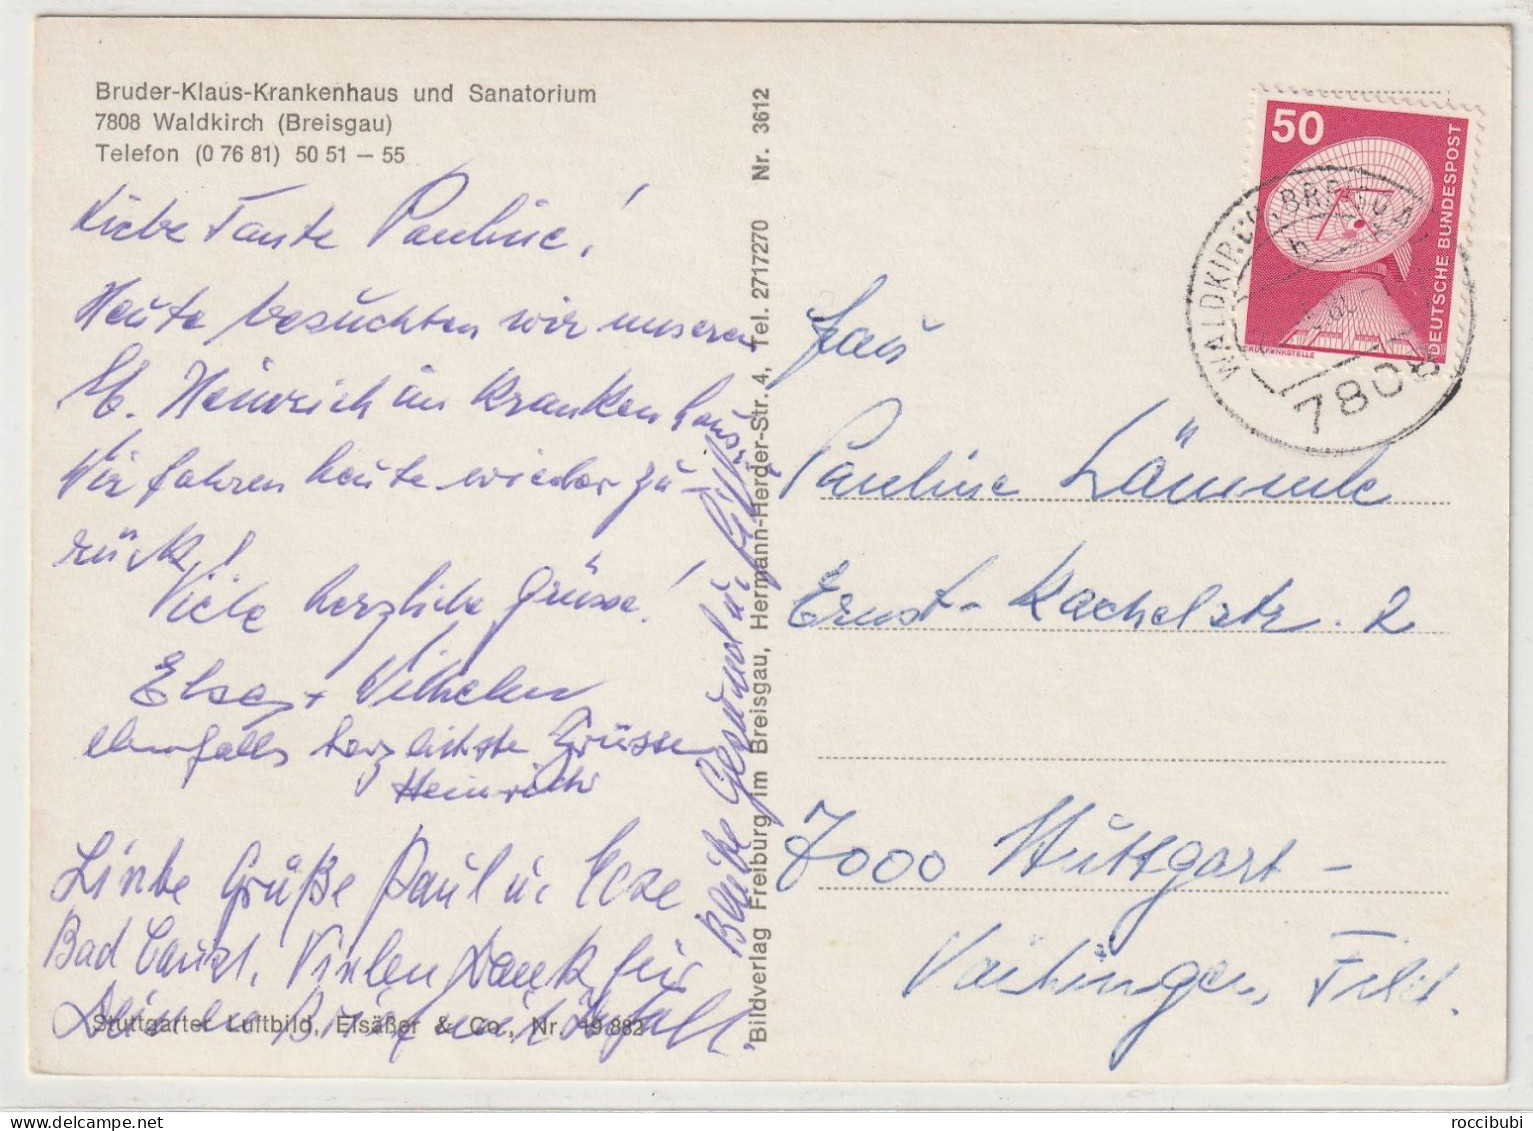 Bruder-Klaus-Krankenhaus und Sanatorium
7808 Waldkirch (Breisgau)
Telefon (0 76 81) 50 51 – 55
Liebe Tante Pauline!
Heute besuchten wir unseren
lb. Heinrich im Krankenhaus.
Wir fahren heute wieder zu-
rück!
Viele herzliche Grüsse!
Else + Wilhelm
ebenfalls herzlichste Grüsse
Heinrich
Liebe Grüße Paul u.
Bad Vielen Dank für
Deinen Brief mit Inhalt.
Bleibe Gesund u.
Stuttgarter Luftbild, Elsäßer & Co., Nr. 19 882
Bildverlag Freiburg im Breisgau, Hermann-Herder-Str. 4, Tel. 2717270 Nr. 3612
50
DEUTSCHE BUNDESPOST
ERDFUNKSTELLE
WALDKIRCH, BREISGAU
7808
Frau
Pauline Lämmle
Ernst-Kachelstr. 2
7000 Stuttgart-
Vaihingen, Fild.
roccibubi